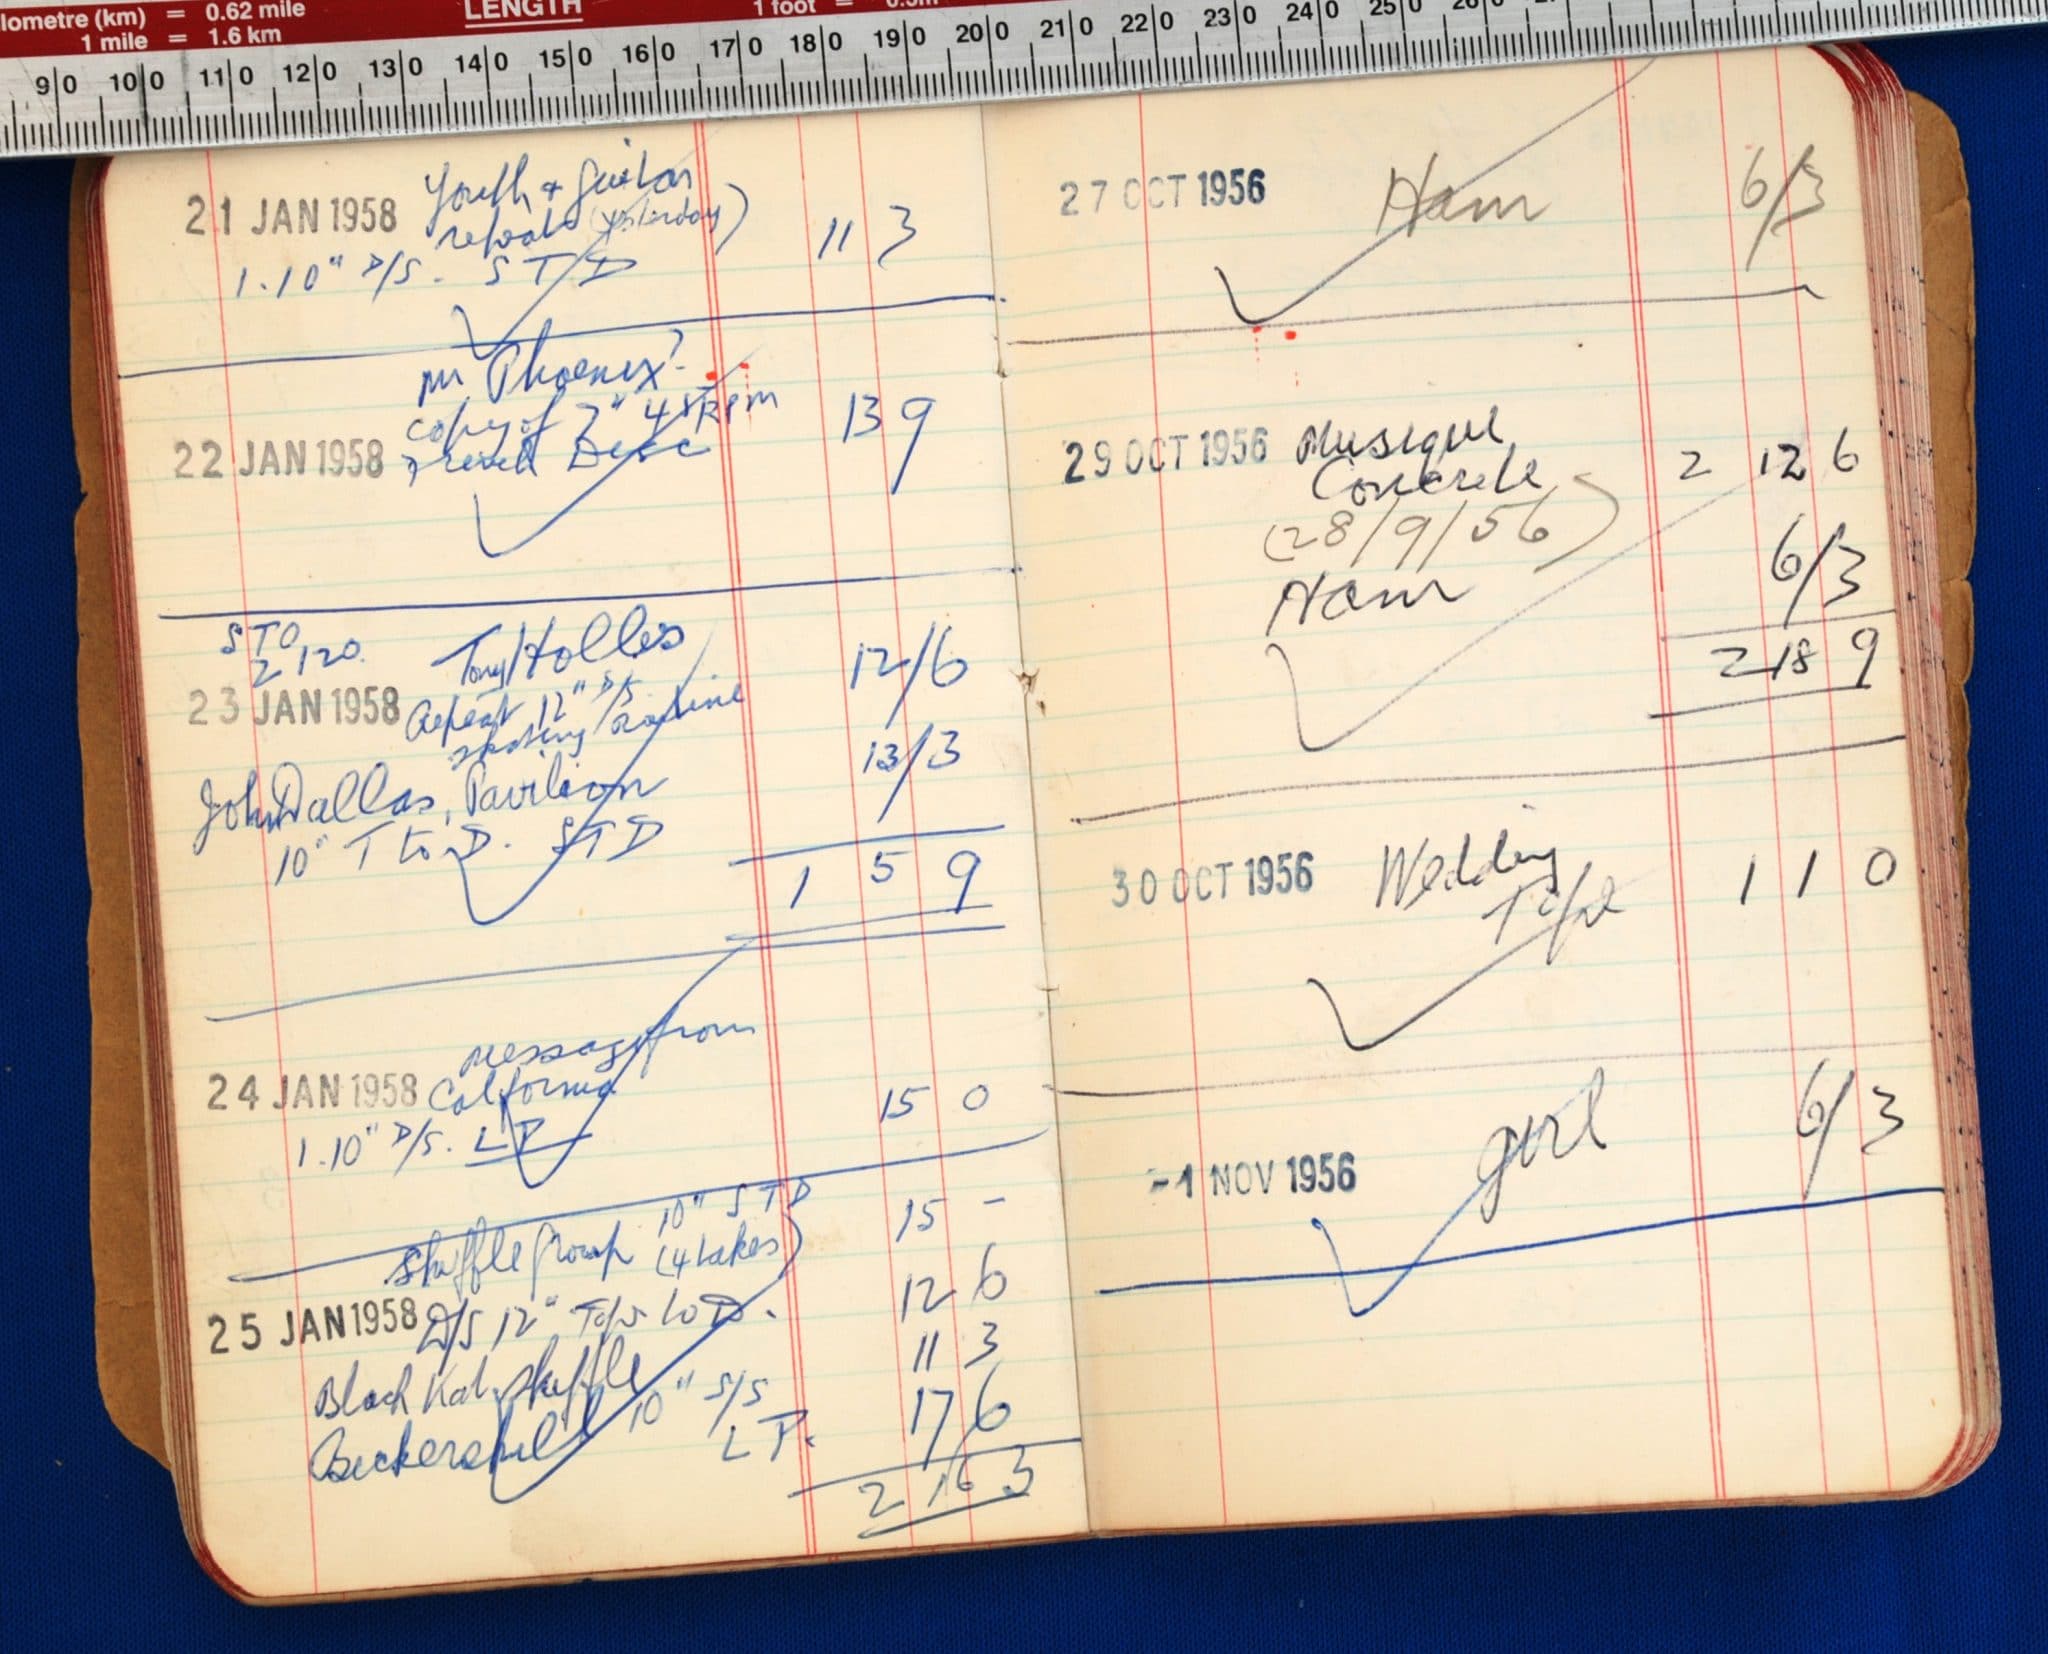 lometre (km) = 0.62 mile
1 mile = 1.6 km
LENGTH
1 foot =
90 100 110 120 130 140 150 160 170 180 190 200 210 220 230 240 250 260
21 JAN 1958 Youth & Guitar
repeat (yesterday) 11 3
1.10" D/S. STD
Mr Phoenix?
copy of 7" 45 RPM 13 9
22 JAN 1958 Disc
STD
2,120.
Tony Holles 12/6
23 JAN 1958 Repeat 12" D/S.
skating routine
13/3
John Dallas, Pavilion
10" T to D. STD
1 5 9
message from
24 JAN 1958 California 15 0
1.10" D/S. LP
Skiffle Group 10" STD (4 takes) 15 -
25 JAN 1958 D/S 12" Tape to D. 12 6
Black Kat skiffle 11 3
10" S/S 17 6
LP.
2 16 3
27 OCT 1956 Ham 6/3
29 OCT 1956 Musique 2 12 6
Concrete
(28/9/56)
Ham 6/3
2 18 9
30 OCT 1956 Wedding 1 1 0
Tape
-1 NOV 1956 girl 6/3